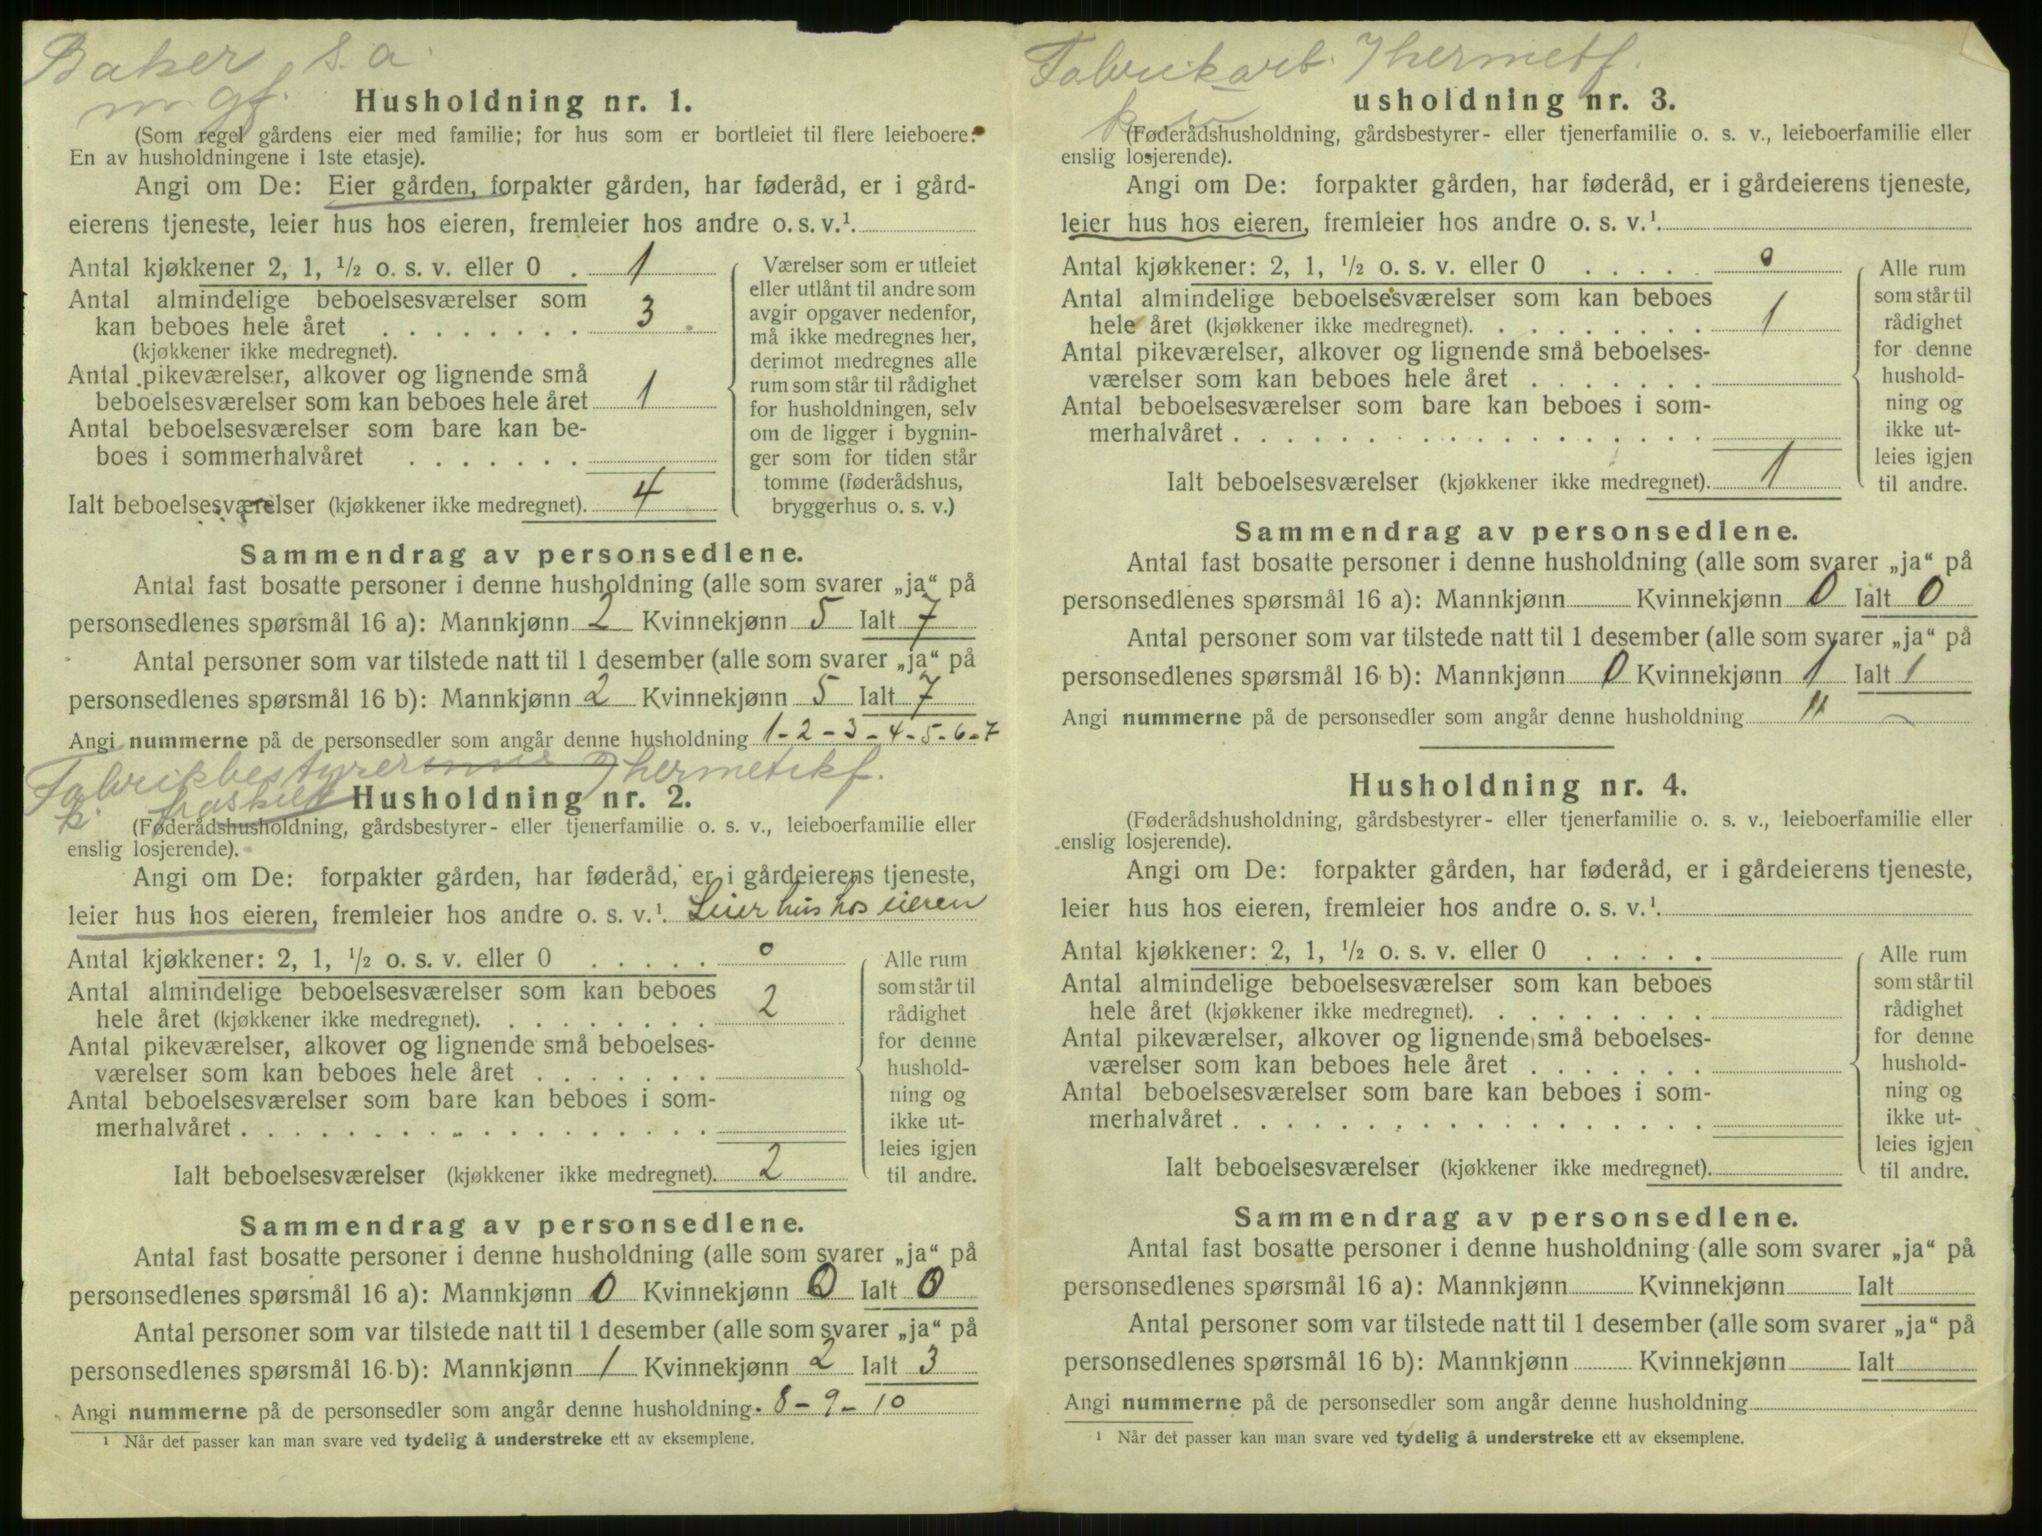 Baker s.a.
m gf.
Husholdning nr. 1.
(Som regel gårdens eier med familie; for hus som er bortleiet til flere leieboere:
En av husholdningene i 1ste etasje).
Angi om De: Eier gården, forpakter gården, har føderåd, er i gård-
eierens tjeneste, leier hus hos eieren, fremleier hos andre o. s. v.¹.
Antal kjøkkener 2, 1, ½ o. s. v. eller 0 . 1
Antal almindelige beboelsesværelser som
kan beboes hele året . . . . . . . . 3
(kjøkkener ikke medregnet).
Antal pikeværelser, alkover og lignende små
beboelsesværelser som kan beboes hele året 1
Antal beboelsesværelser som bare kan be-
boes i sommerhalvåret . . . . . . .
Ialt beboelsesværelser (kjøkkener ikke medregnet). 4
Værelser som er utleiet
eller utlånt til andre som
avgir opgaver nedenfor,
må ikke medregnes her,
derimot medregnes alle
rum som står til rådighet
for husholdningen, selv
om de ligger i bygnin-
ger som for tiden står
tomme (føderådshus,
bryggerhus o. s. v.)
Sammendrag av personsedlene.
Antal fast bosatte personer i denne husholdning (alle som svarer „ja“ på
personsedlenes spørsmål 16 a): Mannkjønn 2 Kvinnekjønn 5 Ialt 7
Antal personer som var tilstede natt til 1 desember (alle som svarer „ja“ på
personsedlenes spørsmål 16 b): Mannkjønn 2 Kvinnekjønn 5 Ialt 7
Angi nummerne på de personsedler som angår denne husholdning 1-2-3-4-5-6-7
Fabrikbestyrer Ihermetikf.
k.
Husholdning nr. 2.
(Føderådshusholdning, gårdsbestyrer- eller tjenerfamilie o. s. v., leieboerfamilie eller
enslig losjerende).
Angi om De: forpakter gården, har føderåd, er i gårdeierens tjeneste,
leier hus hos eieren, fremleier hos andre o. s. v.¹. Leier hus hos eieren
Antal kjøkkener: 2, 1, ½ o. s. v. eller 0 . . . . . 0
Antal almindelige beboelsesværelser som kan beboes
hele året (kjøkkener ikke medregnet). . . . . . . . 2
Antal pikeværelser, alkover og lignende små beboelses-
værelser som kan beboes hele året . . . . . . .
Antal beboelsesværelser som bare kan beboes i som-
merhalvåret . . . . . . . . . . . . . . . . . .
Ialt beboelsesværelser (kjøkkener ikke medregnet). 2
Alle rum
som står til
rådighet
for denne
hushold-
ning og
ikke ut-
leies igjen
til andre.
Sammendrag av personsedlene.
Antal fast bosatte personer i denne husholdning (alle som svarer „ja“ på
personsedlenes spørsmål 16 a): Mannkjønn 0 Kvinnekjønn 0 Ialt 0
Antal personer som var tilstede natt til 1 desember (alle som svarer „ja“ på
personsedlenes spørsmål 16 b): Mannkjønn 1 Kvinnekjønn 2 Ialt 3
Angi nummerne på de personsedler som angår denne husholdning. 8-9-10
¹ Når det passer kan man svare ved tydelig å understreke ett av eksemplene.
Fabrikarb. Ihermetf.
usholdning nr. 3.
(Føderådshusholdning, gårdsbestyrer- eller tjenerfamilie o. s. v., leieboerfamilie eller
enslig losjerende).
Angi om De: forpakter gården, har føderåd, er i gårdeierens tjeneste,
leier hus hos eieren, fremleier hos andre o. s. v.¹.
Antal kjøkkener: 2, 1, ½ o. s. v. eller 0 . . . . . 0
Antal almindelige beboelsesværelser som kan beboes
hele året (kjøkkener ikke medregnet). . . . . . . . 1
Antal pikeværelser, alkover og lignende små beboelses-
værelser som kan beboes hele året . . . . . . .
Antal beboelsesværelser som bare kan beboes i som-
merhalvåret . . . . . . . . . . . . . . . . . .
Ialt beboelsesværelser (kjøkkener ikke medregnet). 1
Alle rum
som står til
rådighet
for denne
hushold-
ning og
ikke ut-
leies igjen
til andre.
Sammendrag av personsedlene.
Antal fast bosatte personer i denne husholdning (alle som svarer „ja“ på
personsedlenes spørsmål 16 a): Mannkjønn Kvinnekjønn 0 Ialt 0
Antal personer som var tilstede natt til 1 desember (alle som svarer „ja“ på
personsedlenes spørsmål 16 b): Mannkjønn 0 Kvinnekjønn 1 Ialt 1
Angi nummerne på de personsedler som angår denne husholdning 11
Husholdning nr. 4.
(Føderådshusholdning, gårdsbestyrer- eller tjenerfamilie o. s. v., leieboerfamilie eller
enslig losjerende).
Angi om De: forpakter gården, har føderåd, er i gårdeierens tjeneste,
leier hus hos eieren, fremleier hos andre o. s. v.¹.
Antal kjøkkener: 2, 1, ½ o. s. v. eller 0 . . . . .
Antal almindelige beboelsesværelser som kan beboes
hele året (kjøkkener ikke medregnet). . . . . . . .
Antal pikeværelser, alkover og lignende små beboelses-
værelser som kan beboes hele året . . . . . . .
Antal beboelsesværelser som bare kan beboes i som-
merhalvåret . . . . . . . . . . . . . . . . . .
Ialt beboelsesværelser (kjøkkener ikke medregnet).
Alle rum
som står til
rådighet
for denne
hushold-
ning og
ikke ut-
leies igjen
til andre.
Sammendrag av personsedlene.
Antal fast bosatte personer i denne husholdning (alle som svarer „ja“ på
personsedlenes spørsmål 16 a): Mannkjønn Kvinnekjønn Ialt
Antal personer som var tilstede natt til 1 desember (alle som svarer „ja“ på
personsedlenes spørsmål 16 b): Mannkjønn Kvinnekjønn Ialt
Angi nummerne på de personsedler som angår denne husholdning
¹ Når det passer kan man svare ved tydelig å understreke ett av eksemplene.